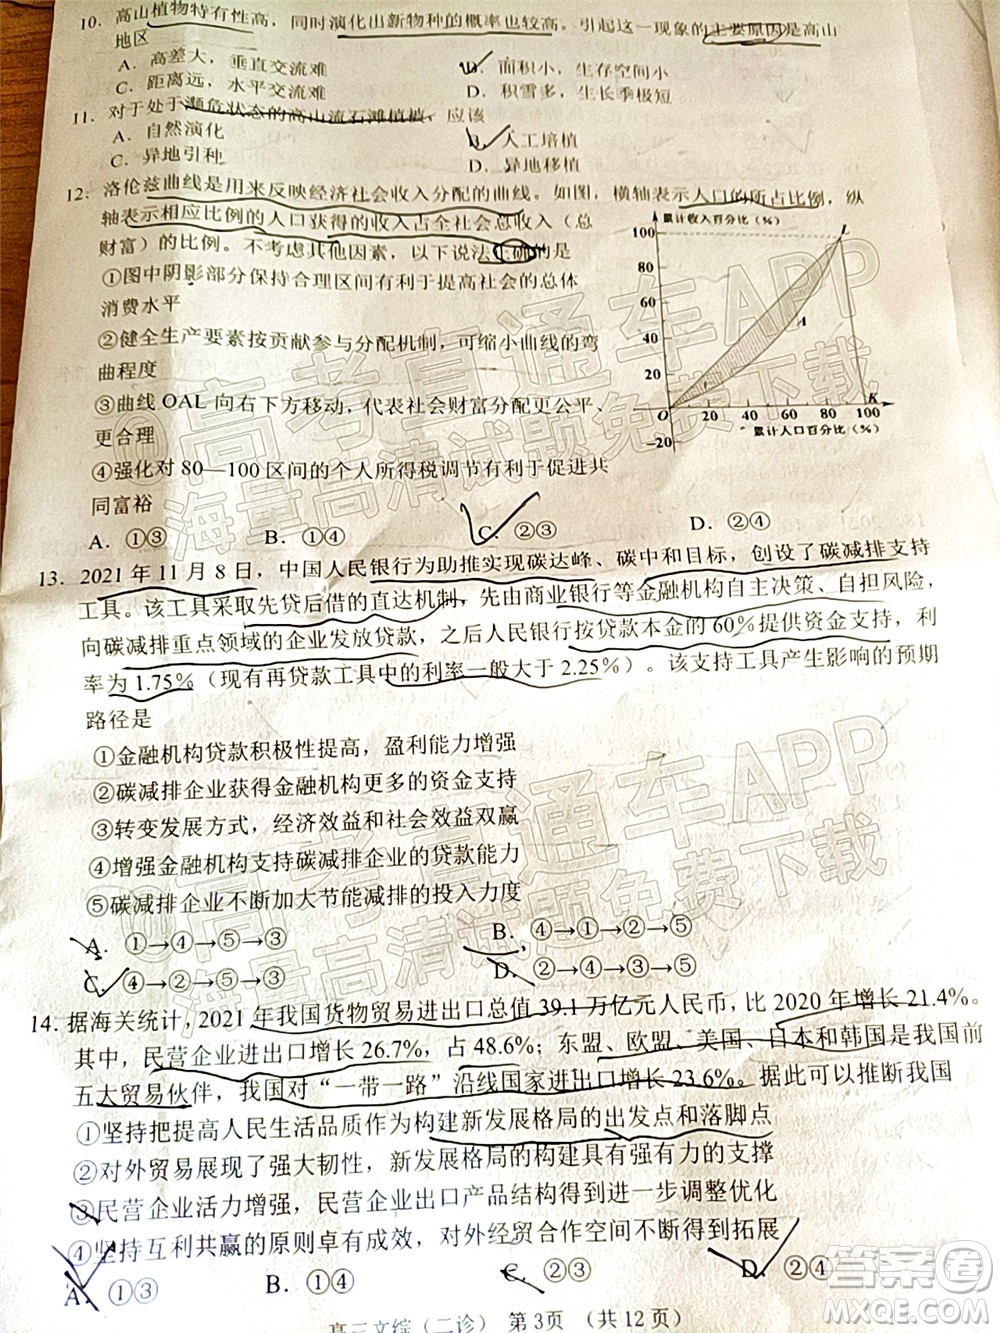 10. 高山植物特有性高，同时演化出新物种的概率也较高。引起这一现象的主要原因是高山
地区
A．高差大，垂直交流难
B．面积小，生存空间小
C．距离远，水平交流难
D．积雪多，生长季极短
11. 对于处于濒危状态的高山流石滩植被，应该
A．自然演化
B．人工培植
C．异地引种
D．异地移植
12. 洛伦兹曲线是用来反映经济社会收入分配的曲线。如图，横轴表示人口的所占比例，纵
轴表示相应比例的人口获得的收入占全社会总收入（总
财富）的比例。不考虑其他因素，以下说法正确的是
①图中阴影部分保持合理区间有利于提高社会的总体
消费水平
②健全生产要素按贡献参与分配机制，可缩小曲线的弯
曲程度
③曲线 OAL 向右下方移动，代表社会财富分配更公平、
更合理
④强化对 80—100 区间的个人所得税调节有利于促进共
同富裕
累计收入百分比（%）
100
80
60
40
20
O
-20
20 40 60 80 100
L
A
K
累计人口百分比（%）
A．①③
B．①④
C．②③
D．②④
13. 2021 年 11 月 8 日，中国人民银行为助推实现碳达峰、碳中和目标，创设了碳减排支持
工具。该工具采取先贷后借的直达机制，先由商业银行等金融机构自主决策、自担风险，
向碳减排重点领域的企业发放贷款，之后人民银行按贷款本金的 60% 提供资金支持，利
率为 1.75%（现有再贷款工具中的利率一般大于 2.25%）。该支持工具产生影响的预期
路径是
①金融机构贷款积极性提高，盈利能力增强
②碳减排企业获得金融机构更多的资金支持
③转变发展方式，经济效益和社会效益双赢
④增强金融机构支持碳减排企业的贷款能力
⑤碳减排企业不断加大节能减排的投入力度
A．①→④→⑤→③
B．④→①→②→⑤
C．④→②→⑤→③
D．①→②→④→③
14. 据海关统计，2021 年我国货物贸易进出口总值 39.1 万亿元人民币，比 2020 年增长 21.4%。
其中，民营企业进出口增长 26.7%，占 48.6%；东盟、欧盟、美国、日本和韩国是我国前
五大贸易伙伴，我国对“一带一路”沿线国家进出口增长 23.6%。据此可以推断我国
①坚持把提高人民生活品质作为构建新发展格局的出发点和落脚点
②对外贸易展现了强大韧性，新发展格局的构建具有强有力的支撑
③民营企业活力增强，民营企业出口产品结构得到进一步调整优化
④坚持互利共赢的原则卓有成效，对外经贸合作空间不断得到拓展
A．①③
B．①④
C．②③
D．②④
高三文综（二诊） 第 3页 （共 12 页）
高考直通车APP
海量高清试题免费下载
高考直通车APP
海量高清试题免费下载
答案圈
MXQE.COM